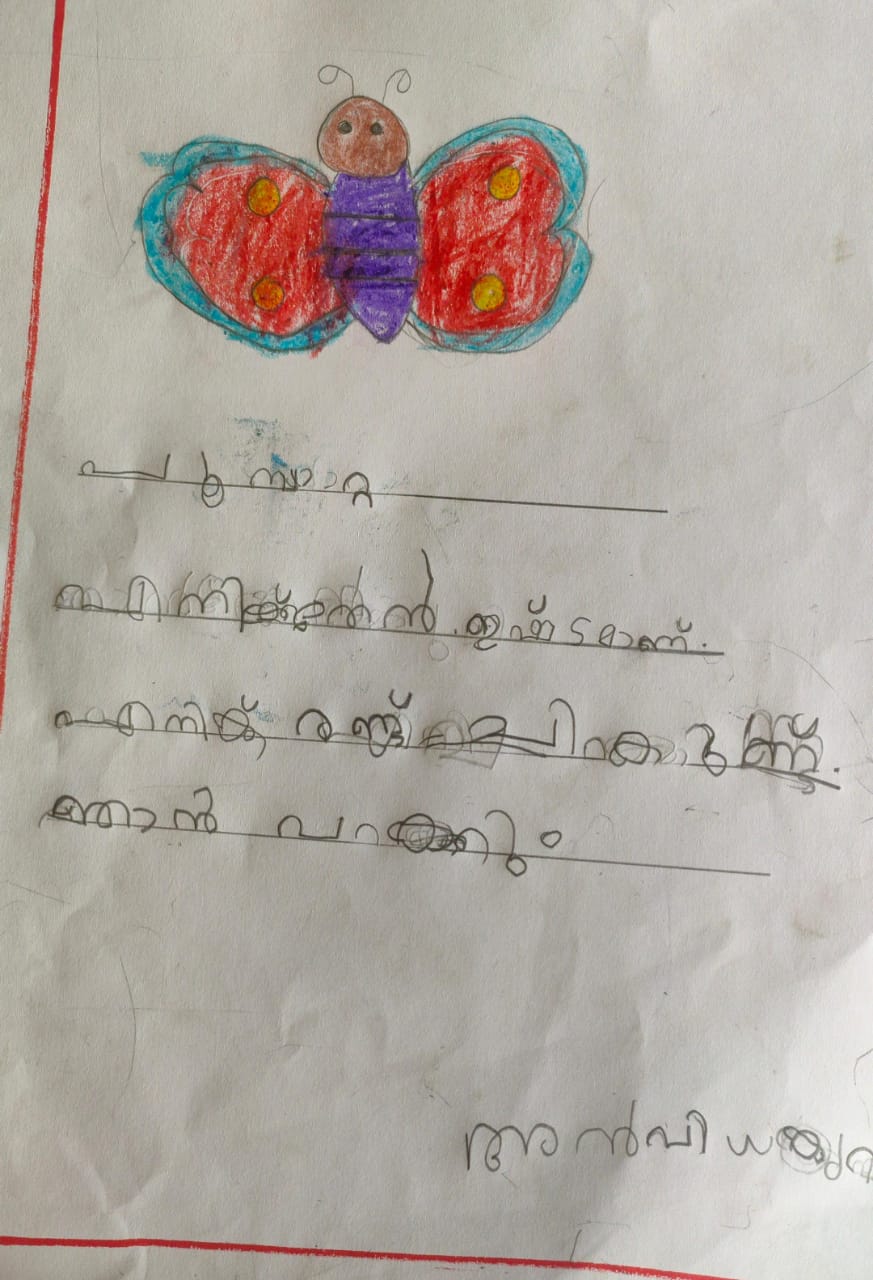 പൂമ്പാറ്റ
എനിക്ക് തേൻ ഇഷ്ടമാണ്.
എനിക്ക് രണ്ട് ചിറകുണ്ട്.
ഞാൻ പറക്കും
അൻവി